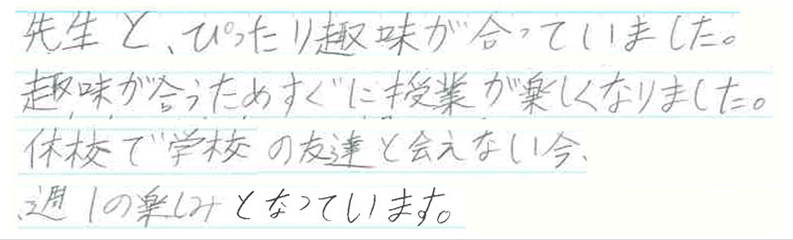 先生と、ぴったり趣味が合っていました。
趣味が合うためすぐに授業が楽しくなりました。
休校で学校の友達と会えない今、
週1の楽しみとなっています。